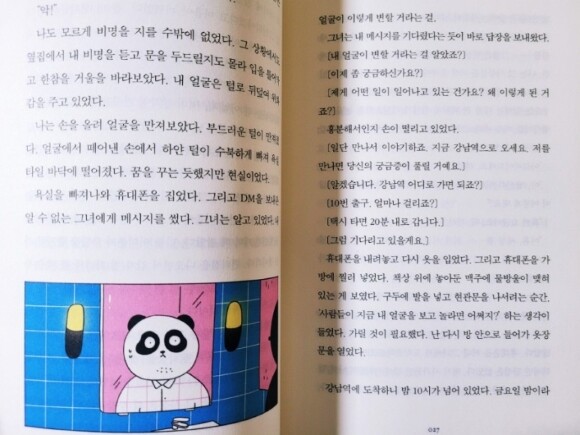 "악!"
나도 모르게 비명을 지를 수밖에 없었다. 그 상황에서도
옆집에서 내 비명을 듣고 문을 두드릴지도 몰라 입을 틀어
고 한참을 거울을 바라보았다. 내 얼굴은 털로 뒤덮여
감을 주고 있었다.
나는 손을 올려 얼굴을 만져보았다. 부드러운 털이 만져
다. 얼굴에서 떼어낸 손에서 하얀 털이 수북하게 빠져
타일 바닥에 떨어졌다. 꿈을 꾸는 듯했지만 현실이었다.
욕실을 빠져나와 휴대폰을 집었다. 그리고 DM을 보내
알 수 없는 그녀에게 메시지를 썼다. 그녀는 알고 있었다.
얼굴이 이렇게 변할 거라는 걸.
그녀는 내 메시지를 기다렸다는 듯이 바로 답장을 보내왔다.
[내 얼굴이 변할 거라는 걸 알았죠?]
[이제 좀 궁금하신가요?]
[제게 어떤 일이 일어나고 있는 건가요? 왜 이렇게 된 거
죠?]
흥분해서인지 손이 떨리고 있었다.
[일단 만나서 이야기하죠. 지금 강남역으로 오세요. 저를
만나면 당신의 궁금증이 풀릴 거예요.]
[알겠습니다. 강남역 어디로 가면 되죠?]
[10번 출구. 얼마나 걸리죠?]
[택시 타면 20분 내로 갑니다.]
[그럼 기다리고 있을게요.]
휴대폰을 내려놓고 다시 옷을 입었다. 그리고 휴대폰을 가
방에 찔러 넣었다. 책상 위에 놓아둔 맥주에 물방울이 맺혀
있는 게 보였다. 구두에 발을 넣고 현관문을 나서려는 순간.
'사람들이 지금 내 얼굴을 보고 놀라면 어쩌지?' 하는 생각이
들었다. 가릴 것이 필요했다. 난 다시 방 안으로 들어가 옷장
문을 열었다.
강남역에 도착하니 밤 10시가 넘어 있었다. 금요일 밤이라
027